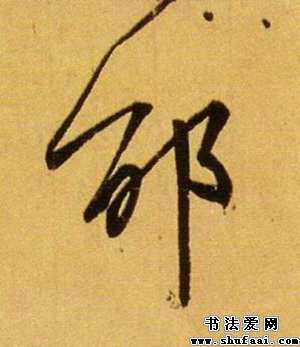 郁
书法爱网
www.shufaai.com